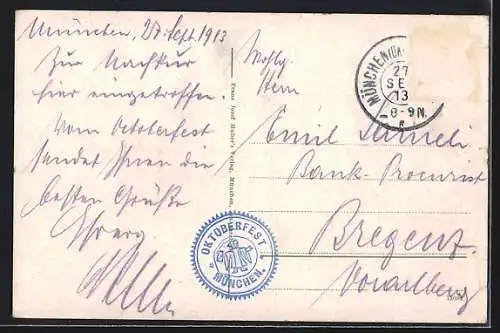 München, 27 Sept. 1913
Zur Nachkur
hier eingetroffen.
Vom Octoberfest
sendet Ihnen die
besten Grüße
Franz Josef Huber's Verlag, München.
Wohlg.
Herrn
Emil
Bank-Procurist
Bregenz.
Vorarlberg
MÜNCHEN
27
SE
13
8-9N.
OKTOBERFEST
MÜNCHEN.